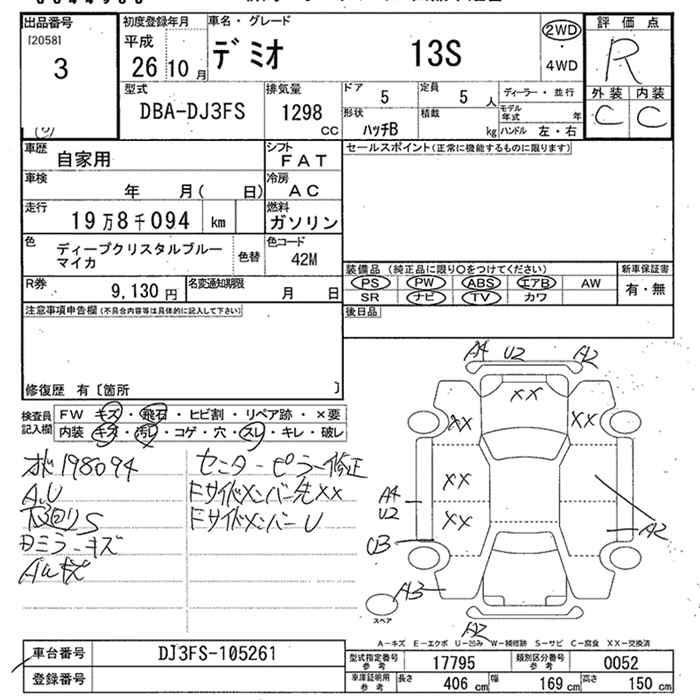 出品番号
[2058]
3
初度登録年月
平成
26 10 月
車名・グレード
デミオ 13S
2WD
・
4WD
評価点
R
外装 内装
C C
型式
DBA-DJ3FS
排気量
1298
cc
ドア 5
定員 5 人
形状 ハッチB
積載 kg
ディーラー・並行
モデル年式 年
ハンドル 左・右
車歴 自家用
シフト FAT
車検 年 月( 日)
冷房 AC
走行 19万8千094 km
燃料 ガソリン
色 ディープクリスタルブルーマイカ
色替
色コード 42M
R券 9,130 円
名変通知期限 月 日
セールスポイント(正常に機能するものに限ります)
装備品 (純正品に限り○をつけてください)
PS PW ABS エアB AW
SR ナビ TV カワ
新車保証書
有・無
後日品
注意事項申告欄(不具合内容等は具体的に記入して下さい)
修復歴 有〔箇所 〕
検査員記入欄
FW キズ・飛石・ヒビ割・リペア跡・×要
内装 キズ・汚レ・コゲ・穴・スレ・キレ・破レ
198094
A.U
下廻りS
Dミラーキズ
センターピラー修正
Fサイドメンバー先××
FサイドメンバーU
A4 U2 A2
××
×× ××
××
××
A4
U2
U3
A2
A3
A2
スペア
A-キズ E-エクボ U-凹み W-補修跡 S-サビ C-腐食 XX-交換済
車台番号 DJ3FS-105261
登録番号
型式指定番号 参考 17795
類別区分番号 参考 0052
車庫証明用 参考 長さ 406 cm 幅 169 cm 高さ 150 cm